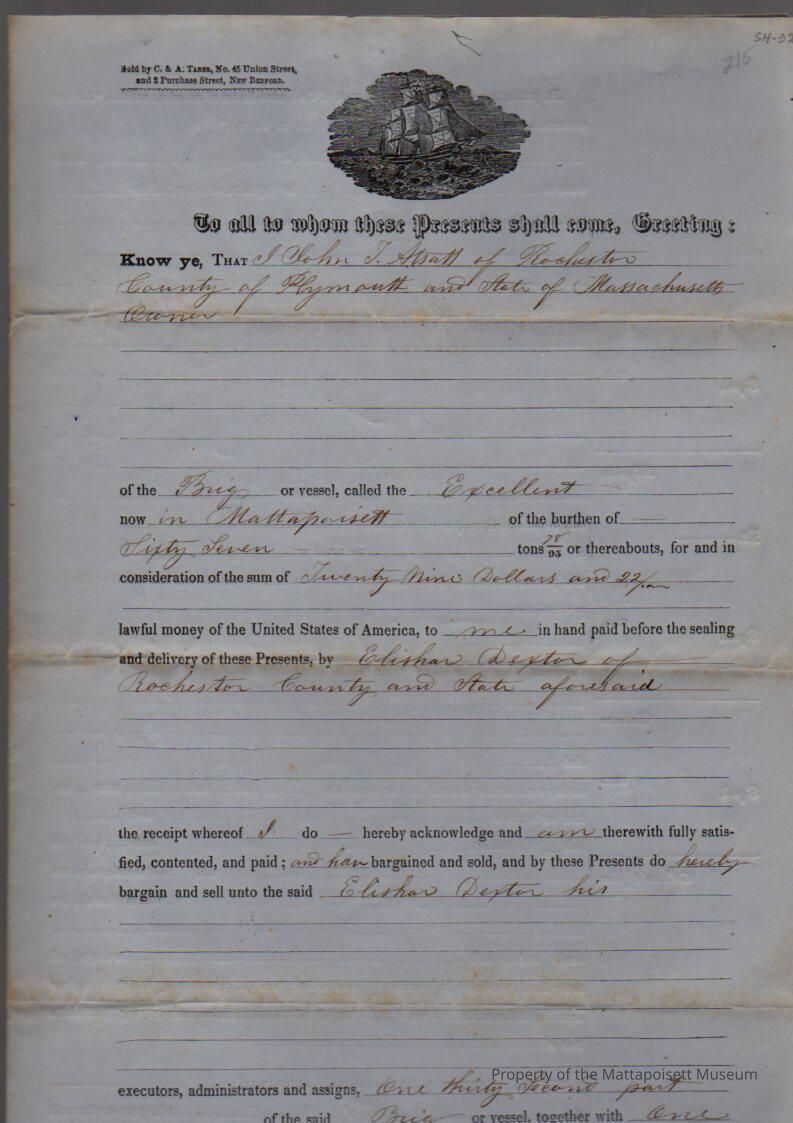 SH-32
215
Sold by C. & A. Taber, No. 45 Union Street,
and 2 Purchase Street, New Bedford.
To all to whom these Presents shall come, Greeting:
Know ye, That I John T. Atsatt of Rochester
County of Plymouth and State of Massachusetts
Owner
of the Brig or vessel, called the Excellent
now in Mattapoisett of the burthen of
Sixty Seven tons 78/95 or thereabouts, for and in
consideration of the sum of Twenty Nine Dollars and 22/100
lawful money of the United States of America, to me in hand paid before the sealing
and delivery of these Presents, by Elishar Dexter of
Rochester County and State aforesaid
the receipt whereof I do hereby acknowledge and am therewith fully satis-
fied, contented, and paid; and have bargained and sold, and by these Presents do hereby
bargain and sell unto the said Elishar Dexter his
executors, administrators and assigns, One thirty Second part
of the said Brig or vessel, together with One
Property of the Mattapoisett Museum